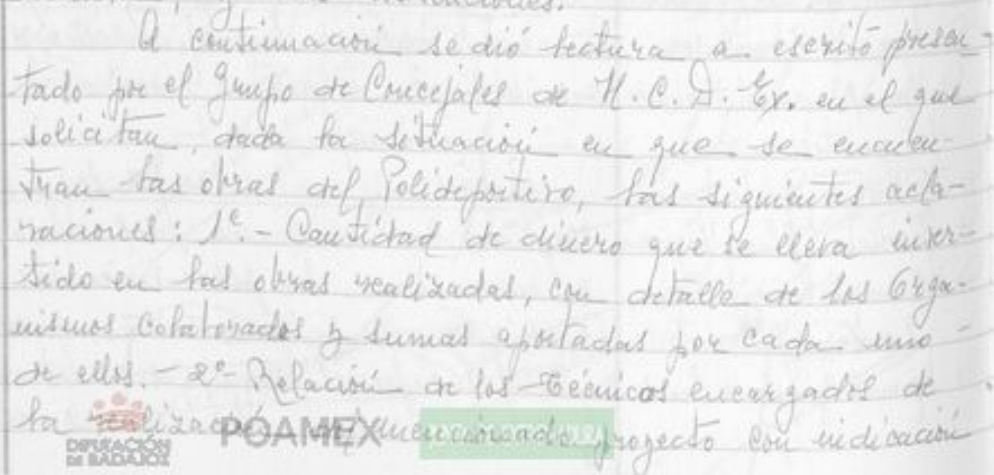 A continuación se dió lectura a escrito presen-
tado por el Grupo de Concejales de U.C.D. Ex. en el que
solicitan, dada la situación en que se encuen-
tran las obras del Polideportivo, las siguientes acla-
raciones: 1º.- Cantidad de dinero que se lleva inver-
tido en las obras realizadas, con detalle de los Orga-
nismos colaborados y sumas aportadas por cada uno
de ellos.- 2º- Relación de los Técnicos encargados de
la realizac mencionado proyecto con indicación
DIPUTACIÓN
DE BADAJOZ
POAMEX